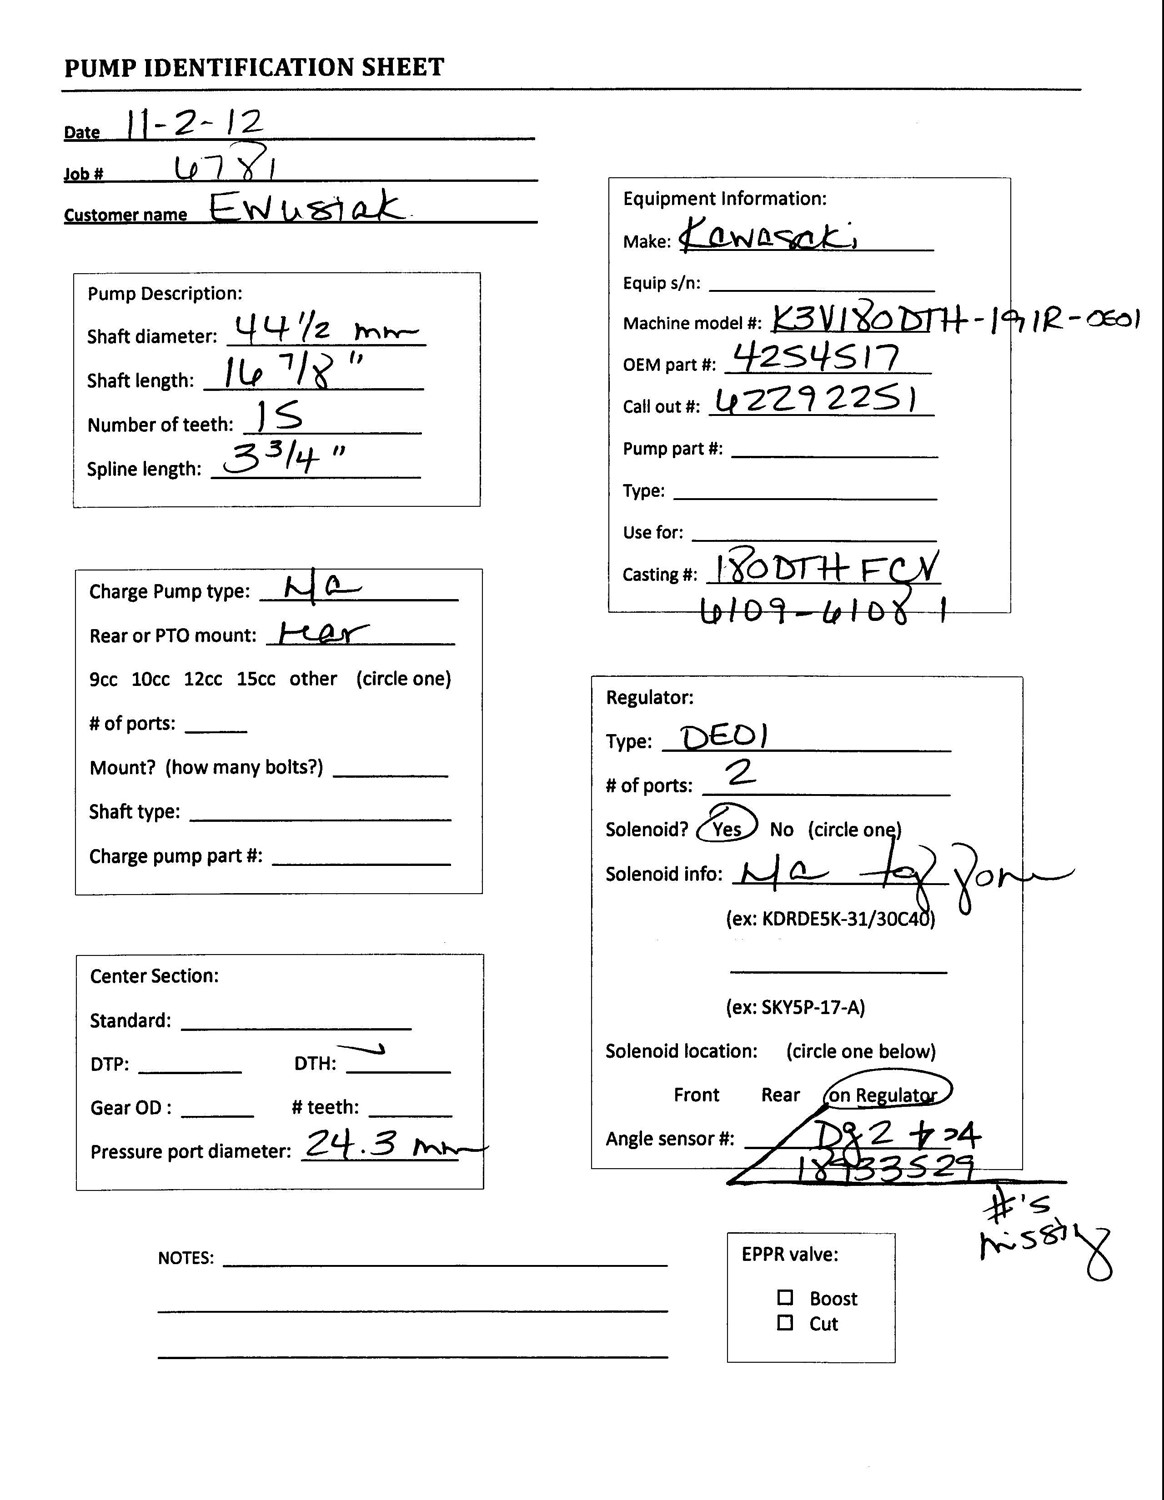 PUMP IDENTIFICATION SHEET
Date 11-2-12
Job # 6781
Customer name Ewusiak
Pump Description:
Shaft diameter: 44 1/2 mm
Shaft length: 16 7/8 "
Number of teeth: 15
Spline length: 3 3/4 "
Charge Pump type: Na
Rear or PTO mount: rear
9cc 10cc 12cc 15cc other (circle one)
# of ports:
Mount? (how many bolts?)
Shaft type:
Charge pump part #:
Center Section:
Standard:
DTP: DTH:
Gear OD : # teeth:
Pressure port diameter: 24.3 mm
Equipment Information:
Make: Kawasaki
Equip s/n:
Machine model #: K3V180DTH-191R-OE01
OEM part #: 4254517
Call out #: 62292251
Pump part #:
Type:
Use for:
Casting #: 180DTH FCV
6109-6108 1
Regulator:
Type: DE01
# of ports: 2
Solenoid? Yes No (circle one)
Solenoid info: Na tag gone
(ex: KDRDE5K-31/30C40)
(ex: SKY5P-17-A)
Solenoid location: (circle one below)
Front Rear on Regulator
Angle sensor #:
18933529
#'s
missing
NOTES:
EPPR valve:
☐ Boost
☐ Cut